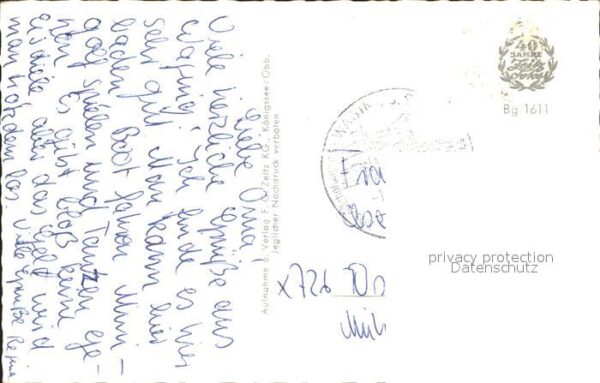 Liebe Oma!
Viele herzliche Grüße aus
Waging. Ich finde es hier
sehr gut. Man kann hier
baden, Boot fahren Mini-
golf spielen und Tanzen ge-
hen. Es gibt bloß keine
aber das Geld wird
man trotzdem los. Viele Grüße
Aufnahme u. Verlag F. G. Zeitz KG., Königssee/Obb.
Jeglicher Nachdruck verboten
40
JAHRE
Zeitz
Fotos
Bg 1611
WAGIN
Fra
x726
privacy protection
Datenschutz